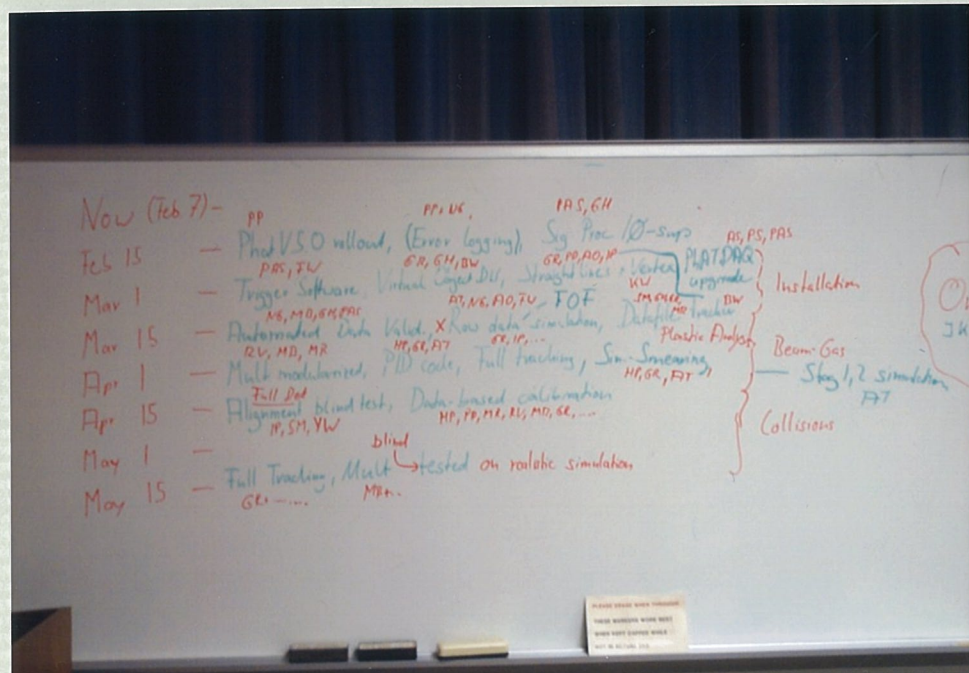 Now (Feb. 7) -
PP PP, NG, PAS, GH
Feb 15 — Phat V5.0 rollout, (Error logging), Sig Proc / 0-sup
PAS, TW GR, GH, BW GR, PP, AO, IP AS, PS, PAS
Mar 1 — Trigger Software, Virtual Object DU, Straight lines, Vertex
PLAT DAQ upgrade
Installation
NG, MD, GH, PAS AT, NG, AO, TU KW BW
TOF
Mar 15 — Automated Data Valid., X Raw data simulation, Datafile Tracker
RV, MD, MR HP, GR, AT GR, IP, ... Plastic Analysis
Apr 1 — Mult modularized, PID code, Full tracking, Sim-Smearing
Beam-Gas
Full Det HP, GR, AT
— Stag 1, 2 simulation
AT
Apr 15 — Alignment blind test, Data-based calibration
IP, SM, YW HP, PP, MR, RV, MD, GR, ....
Collisions
May 1 —
blind
May 15 — Full Tracking, Mult tested on realistic simulation
GR+ ..... MR+..
PLEASE ERASE WHEN THROUGH
THESE MARKERS WORK BEST
WHEN KEPT CAPPED WHILE
NOT IN ACTUAL USE